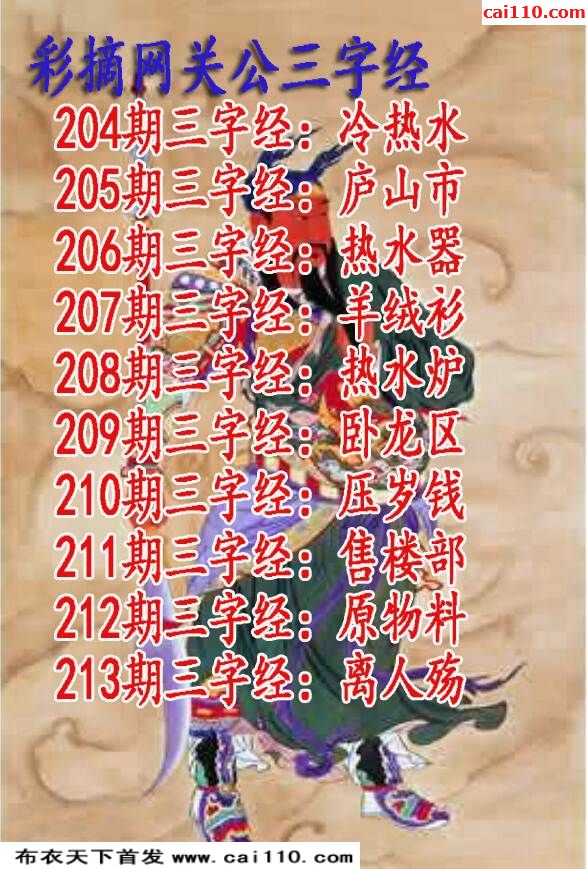 cai110.com
彩摘网关公三字经
204期三字经：冷热水
205期三字经：庐山市
206期三字经：热水器
207期三字经：羊绒衫
208期三字经：热水炉
209期三字经：卧龙区
210期三字经：压岁钱
211期三字经：售楼部
212期三字经：原物料
213期三字经：离人殇
布衣天下首发 www.cai110.com